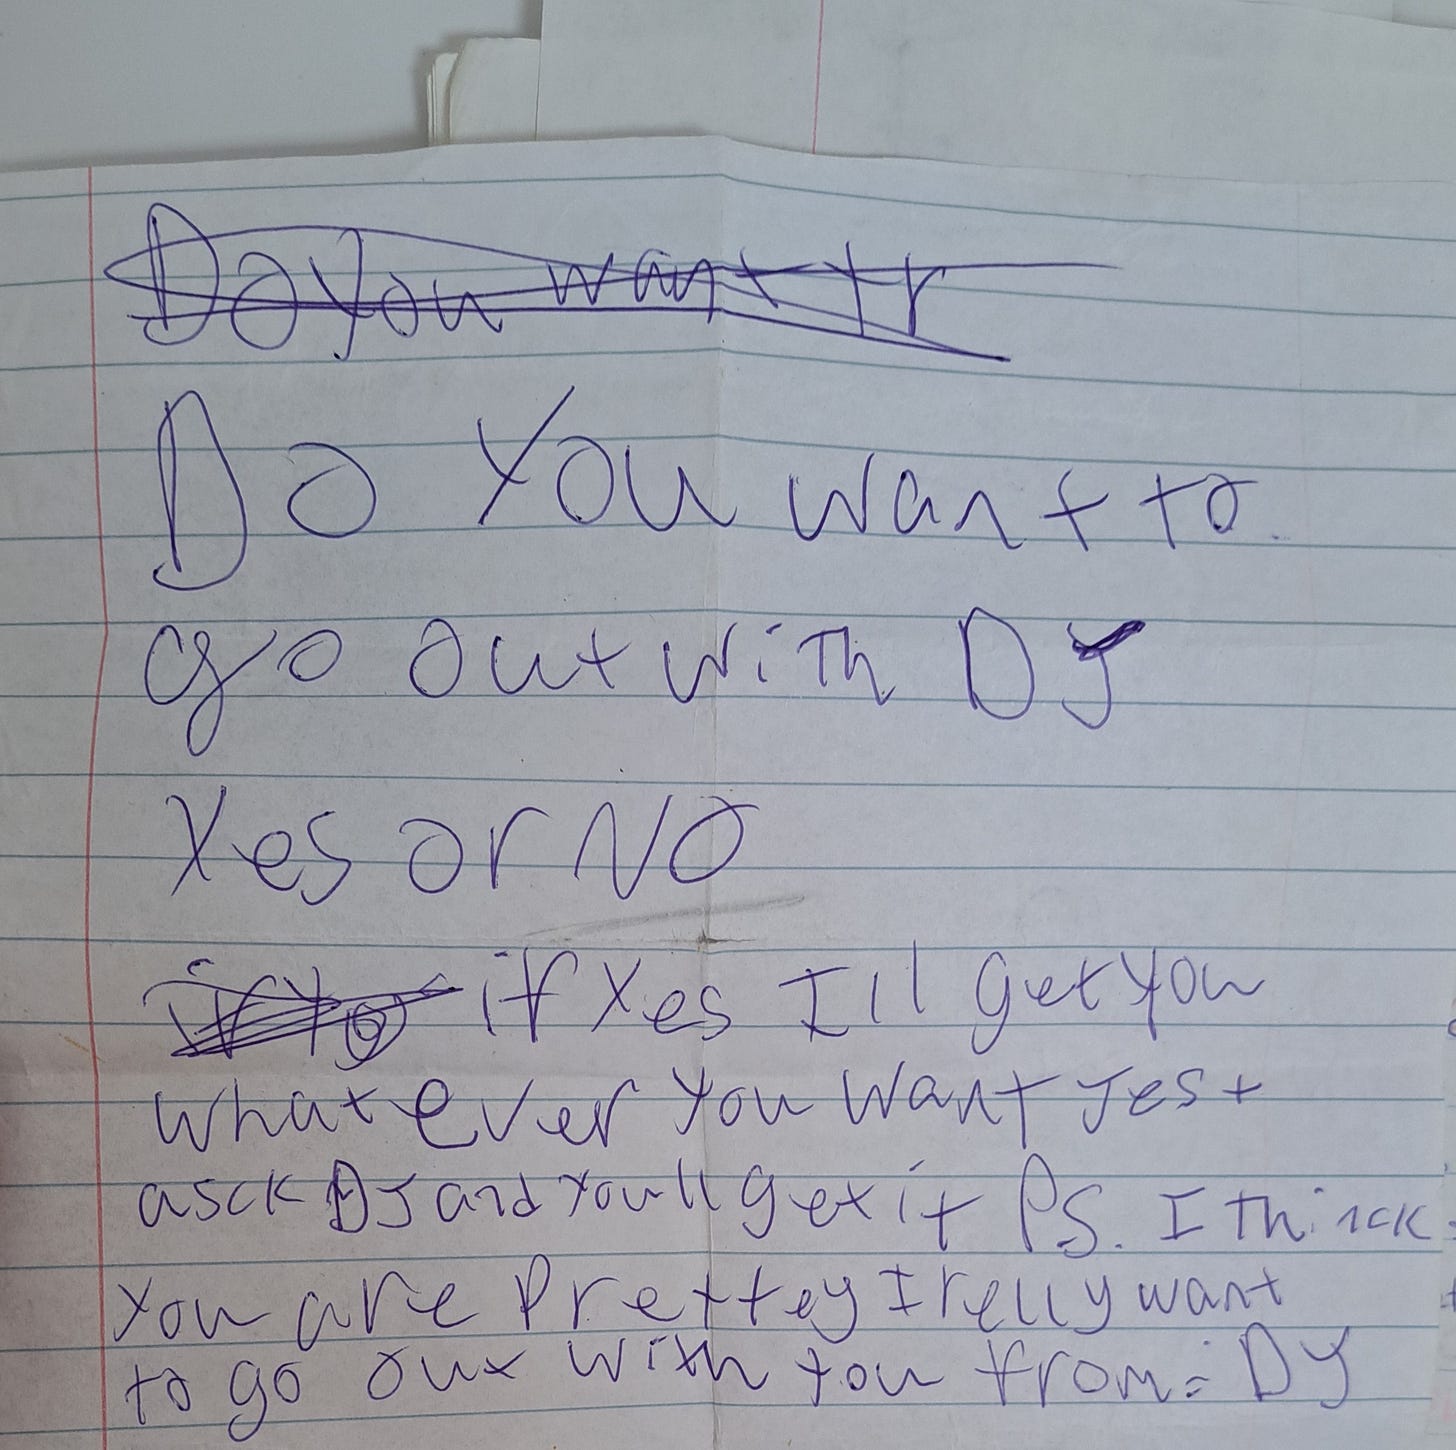 Do You want tr
Do You want to
go out with DJ
Yes or NO
if Yo if Yes I'll get you
what ever you want Jest
asck DJ and you'll get it PS. I thinck
you are Prettey I relly want
to go out with you from: DJ